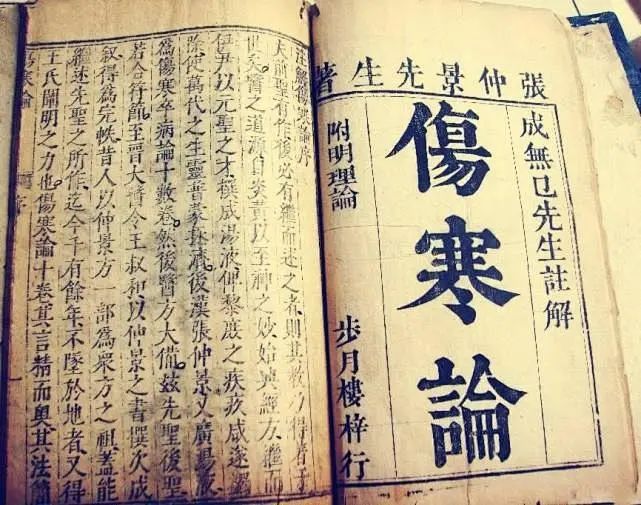 張仲景先生著
成無已先生註解
傷寒論
附明理論
步月樓梓行
註解傷寒論序
夫前聖有作後必有繼而述之者則其教乃得著于
世矣醫之道源自炎黃以至神之妙始興經方繼而
伊尹以元聖之才撰成湯液俾黎庶之疾疚咸遂蠲
除使萬代之生靈普蒙拯濟後漢張仲景又廣湯液
為傷寒卒病論十數卷然後醫方大備茲先聖後聖
若合符節至晉太醫令王叔和以仲景之書撰次成
叙得為完帙昔人以仲景方一部為衆方之祖蓋能
繼述先聖之所作迄今千有餘年不墜於地者又得
王氏闡明之力也傷寒論十卷其言精而奧其法簡
傷寒論 序